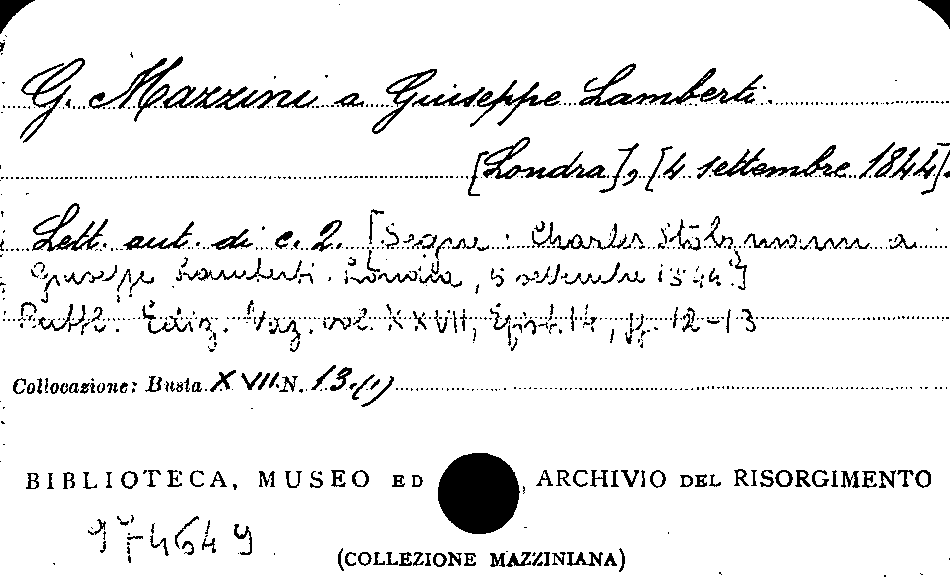 G. Mazzini a Giuseppe Lamberti.
[Londra], [4 settembre 1844].
Lett. aut. di c. 2. [Segue: Charles Stölzmann a
Giuseppe Lamberti. Londra, 5 settembre 1844.]
Pubbl. Ediz. Naz. vol. XXVII, Epist. 14, pp. 12-13
Collocazione: Busta XVII N. 13.(1)
BIBLIOTECA, MUSEO ED ARCHIVIO DEL RISORGIMENTO
974649
(COLLEZIONE MAZZINIANA)